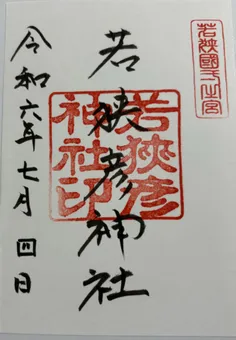 若狹國一之宮
若狭彦神社
若狹彦
神社印
令和六年七月四日